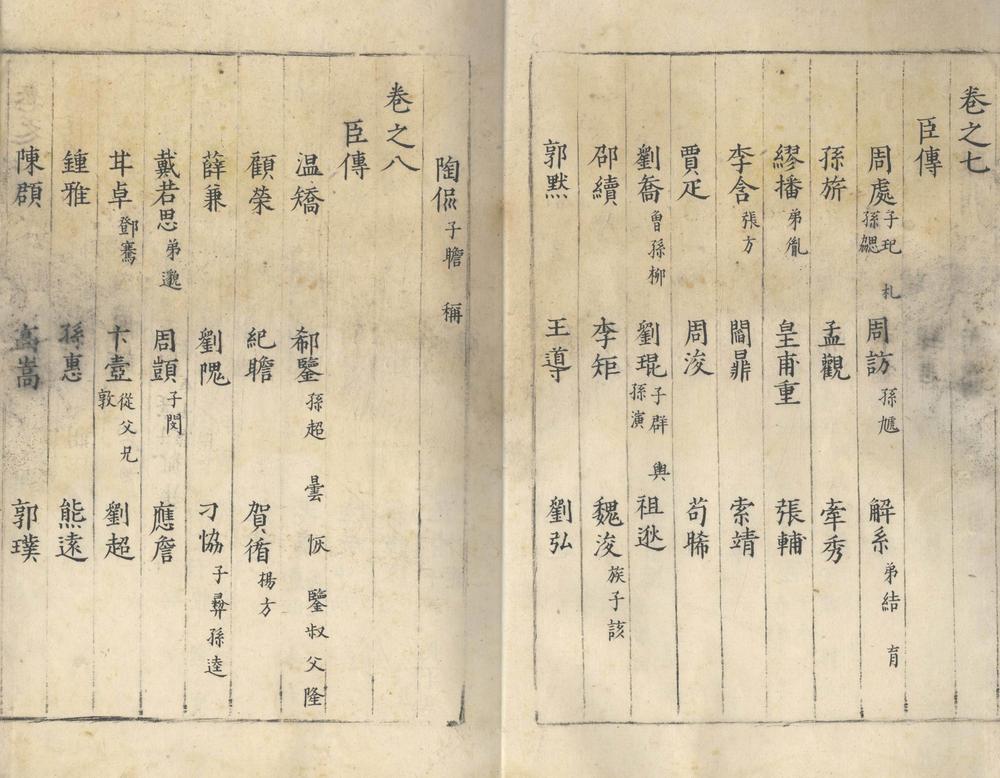 卷之七
臣傳
周處 子玘 札 孫勰 周訪 孫虓 解系 弟結 育
孫旂 孟觀 牽秀
繆播 弟胤 皇甫重 張輔
李含 張方 閻鼎 索靖
賈疋 周浚 苟晞
劉喬 曾孫柳 劉琨 子群 輿 孫演 祖逖
邵續 李矩 魏浚 族子該
郭默 王導 劉弘
陶侃 子瞻 稱
卷之八
臣傳
温矯 郗鑒 孫超 曇 恢 鑒叔父隆
顧榮 紀瞻 賀循 楊方
薛兼 劉隗 刁協 子彝 孫逵
戴若思 弟邈 周顗 子閔 應詹
甘卓 鄧騫 卞壼 從父兄敦 劉超
鍾雅 孫惠 熊遠
陳頵 高嵩 郭璞